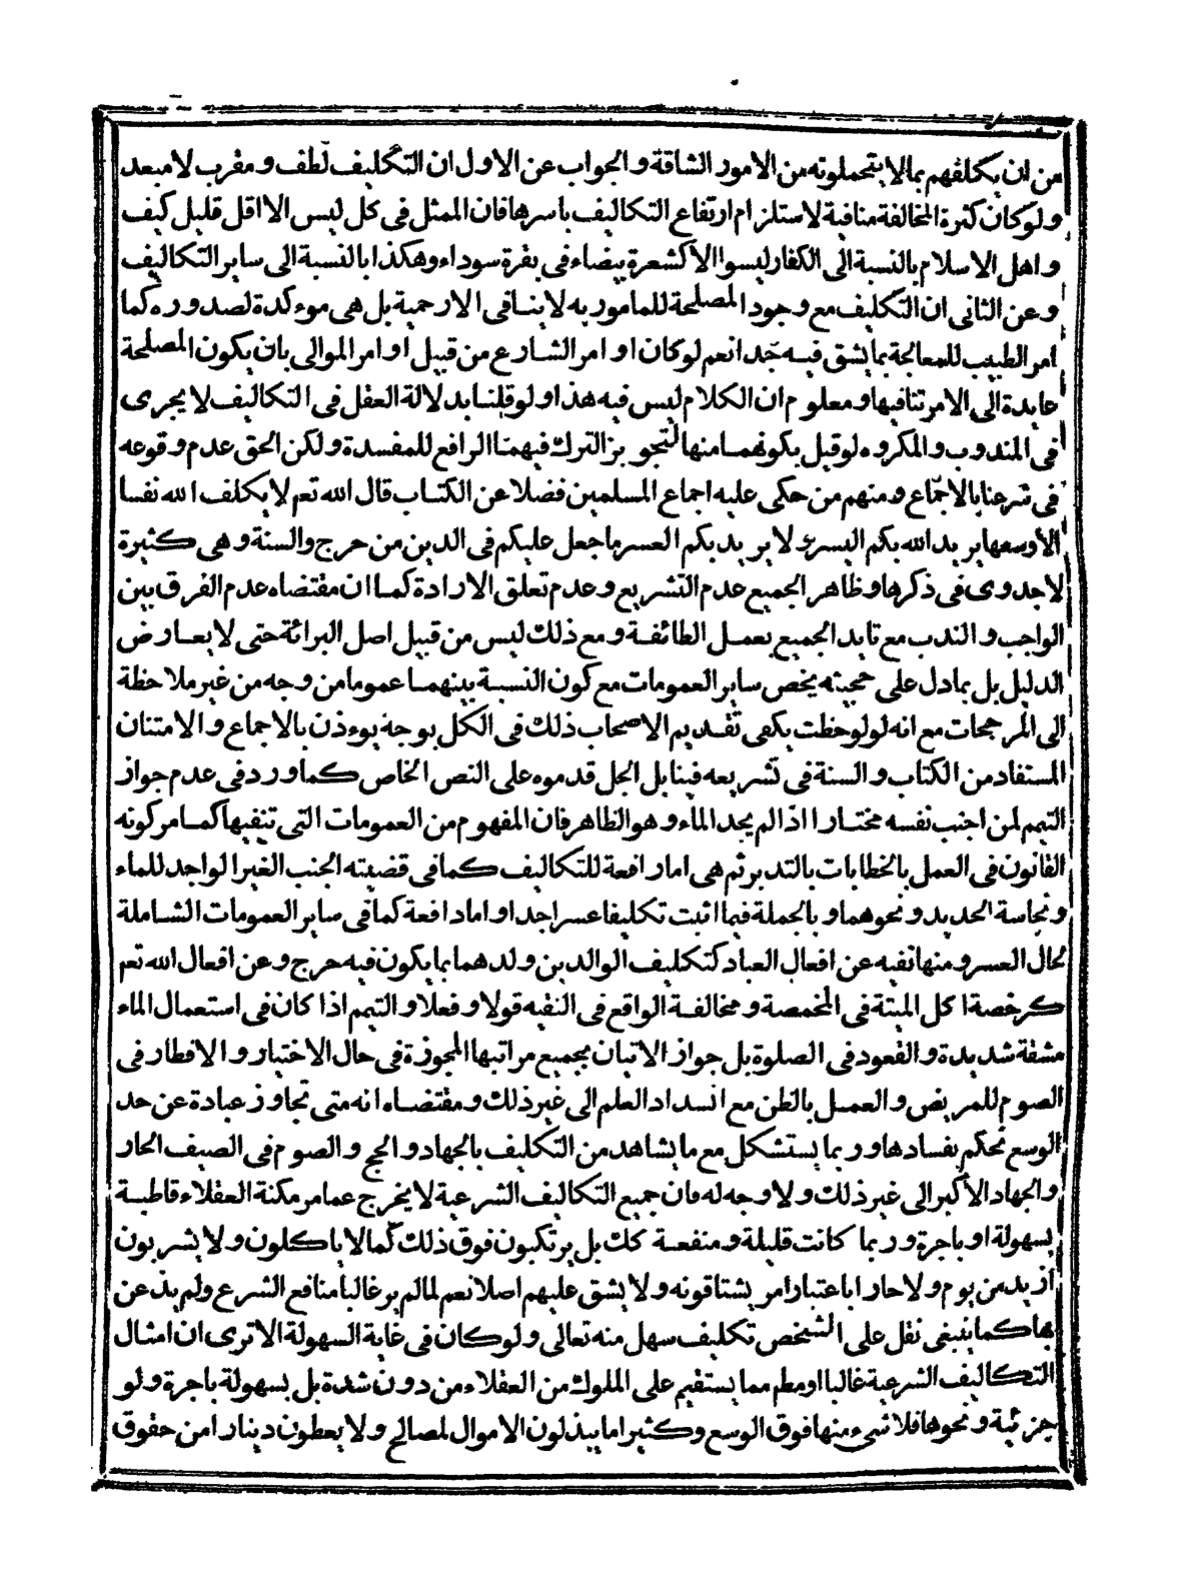 من ان يكلفهم بما لا يتحملونه من الامور الشاقة و الجواب عن الاول ان التكليف لطف و مقرب لا مبعد
و لو كان كثرة المخالفة منافية لاستلزام ارتفاع التكاليف باسرها فان الممثل فى كل ليس الا اقل قليل كيف
و اهل الاسلام بالنسبة الى الكفار ليسوا الا كشعرة بيضاء فى بقرة سوداء و هكذا بالنسبة الى ساير التكاليف
و عن الثانى ان التكليف مع وجود المصلحة للمامور به لا ينافى الارحمية بل هى موءكدة لصدوره كما
امر الطبيب للمعالجة بما يشق فيه جدا نعم لو كان اوامر الشارع من قبيل اوامر الموالى بان يكون المصلحة
عايدة الى الامر تنافيها و معلوم ان الكلام ليس فيه هذا و لو قلنا بدلالة العقل فى التكاليف لا يجرى
فى المندوب و المكروه لو قيل بكونهما منها لتجويز الترك فيهما الرافع للمفسدة و لكن الحق عدم وقوعه
فى شرعنا بالاجماع و منهم من حكى عليه اجماع المسلمين فضلا عن الكتاب قال الله تعم لا يكلف الله نفسا
الا وسعها يريد الله بكم اليسر و لا يريد بكم العسر ما جعل عليكم فى الدين من حرج و السنة و هى كثيرة
لا جدوى فى ذكرها و ظاهر الجميع عدم التشريع و عدم تعلق الارادة كما ان مقتضاه عدم الفرق بين
الواجب و الندب مع تايد الجميع بعمل الطائفة و مع ذلك ليس من قبيل اصل البرائة حتى لا يعارض
الدليل بل بما دل على حجيته يخص ساير العمومات مع كون النسبة بينهما عموما من وجه من غير ملاحظة
الى المرجحات مع انه لو لوحظت يكفى تقديم الاصحاب ذلك فى الكل بوجه يوءذن بالاجماع و الامتنان
المستفاد من الكتاب و السنة فى تشريعه فينا بل الجل قدموه على النص الخاص كما ورد فى عدم جواز
التيمم لمن اجنب نفسه مختارا اذا لم يجد الماء و هو الظاهر فان المفهوم من العمومات التى تنفيها كما مر كونه
القانون فى العمل بالخطابات بالتدبر ثم هى اما رافعة للتكاليف كما فى قضيته الجنب الغير الواجد للماء
و نجاسة الحديد و نحوهما و بالجملة فيما اثبت تكليفا عسرا جدا و اما دافعة كما فى ساير العمومات الشاملة
لحال العسر و منها نفيه عن افعال العباد كتكليف الوالدين ولدهما بما يكون فيه حرج و عن افعال الله تعم
كرخصة اكل الميتة فى المخمصة و مخالفة الواقع فى التقيه قولا و فعلا و التيمم اذا كان فى استعمال الماء
مشقة شديدة و القعود فى الصلوة بل جواز الاتيان بجميع مراتبها المجوزة فى حال الاختيار و الافطار فى
الصوم للمريض و العمل بالظن مع انسداد العلم الى غير ذلك و مقتضاه انه متى تجاوز عبادة عن حد
الوسع نحكم بفسادها و ربما يستشكل مع ما يشاهد من التكليف بالجهاد و الحج و الصوم فى الصيف الحار
و الجهاد الأكبر الى غير ذلك و لا وجه له فان جميع التكاليف الشرعية لا يخرج عما مر مكنة العقلاء قاطبة
بسهولة او باجرة و ربما كانت قليلة و منفعة كك بل يرتكبون فوق ذلك كما لا ياكلون و لا يشربون
ازيد من يوم و لا حارا باعتبار امر يشتاقونه و لا يشق عليهم اصلا نعم لما لم ير غالبا منافع الشرع و لم يذعن
بها كما ينبغى نقل على الشخص تكليف سهل منه تعالى و لو كان فى غاية السهولة الا ترى ان امثال
التكاليف الشرعية غالبا او مطم مما يستقيم على الملوك من العقلاء من دون شدة بل بسهولة باجرة و لو
جزئية و نحوها فلا شىء منها فوق الوسع و كثيرا ما يبذلون الاموال لمصالح و لا يعطون دينارا من حقوق